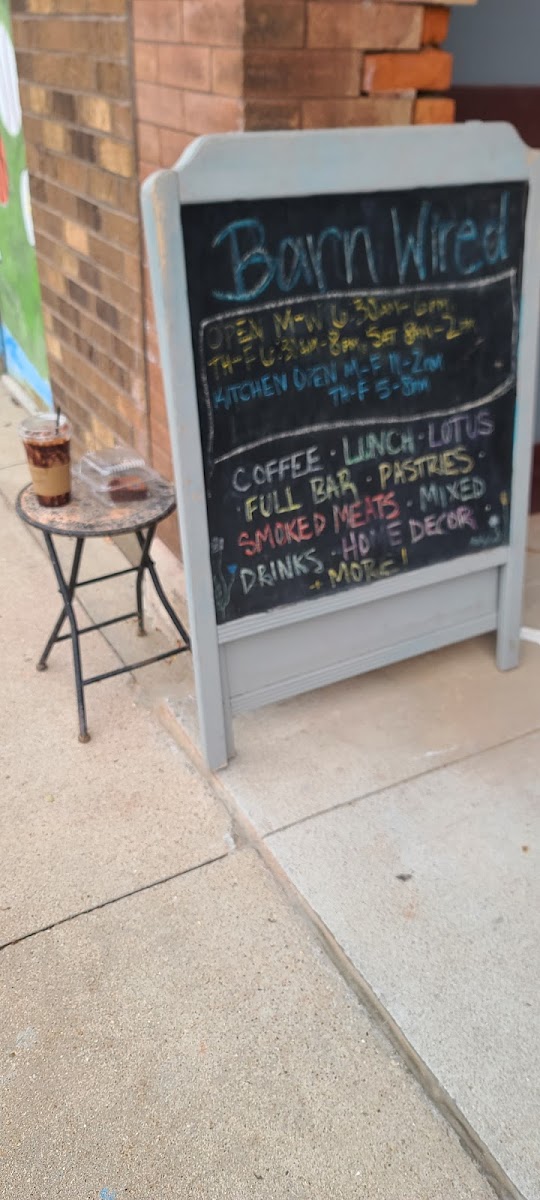 Barn Wired
OPEN M-W 6:30am-6pm,
TH-F 6:30am-8pm, SAT 8am-2pm
KITCHEN OPEN M-F 11-2pm
TH-F 5-8pm
COFFEE · LUNCH · LOTUS
· FULL BAR · PASTRIES ·
SMOKED MEATS · MIXED
DRINKS · HOME DECOR ·
+ MORE!